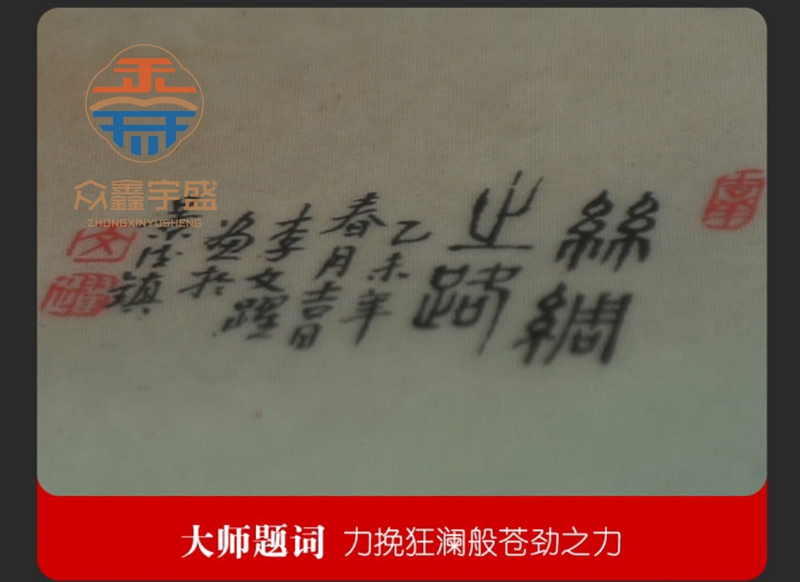 众鑫宇盛
ZHONGXINYUSHENG
絲綢
之路
乙未年
春月吉日
李文躍
畫於
鎮
文
躍
大师题词 力挽狂澜般苍劲之力